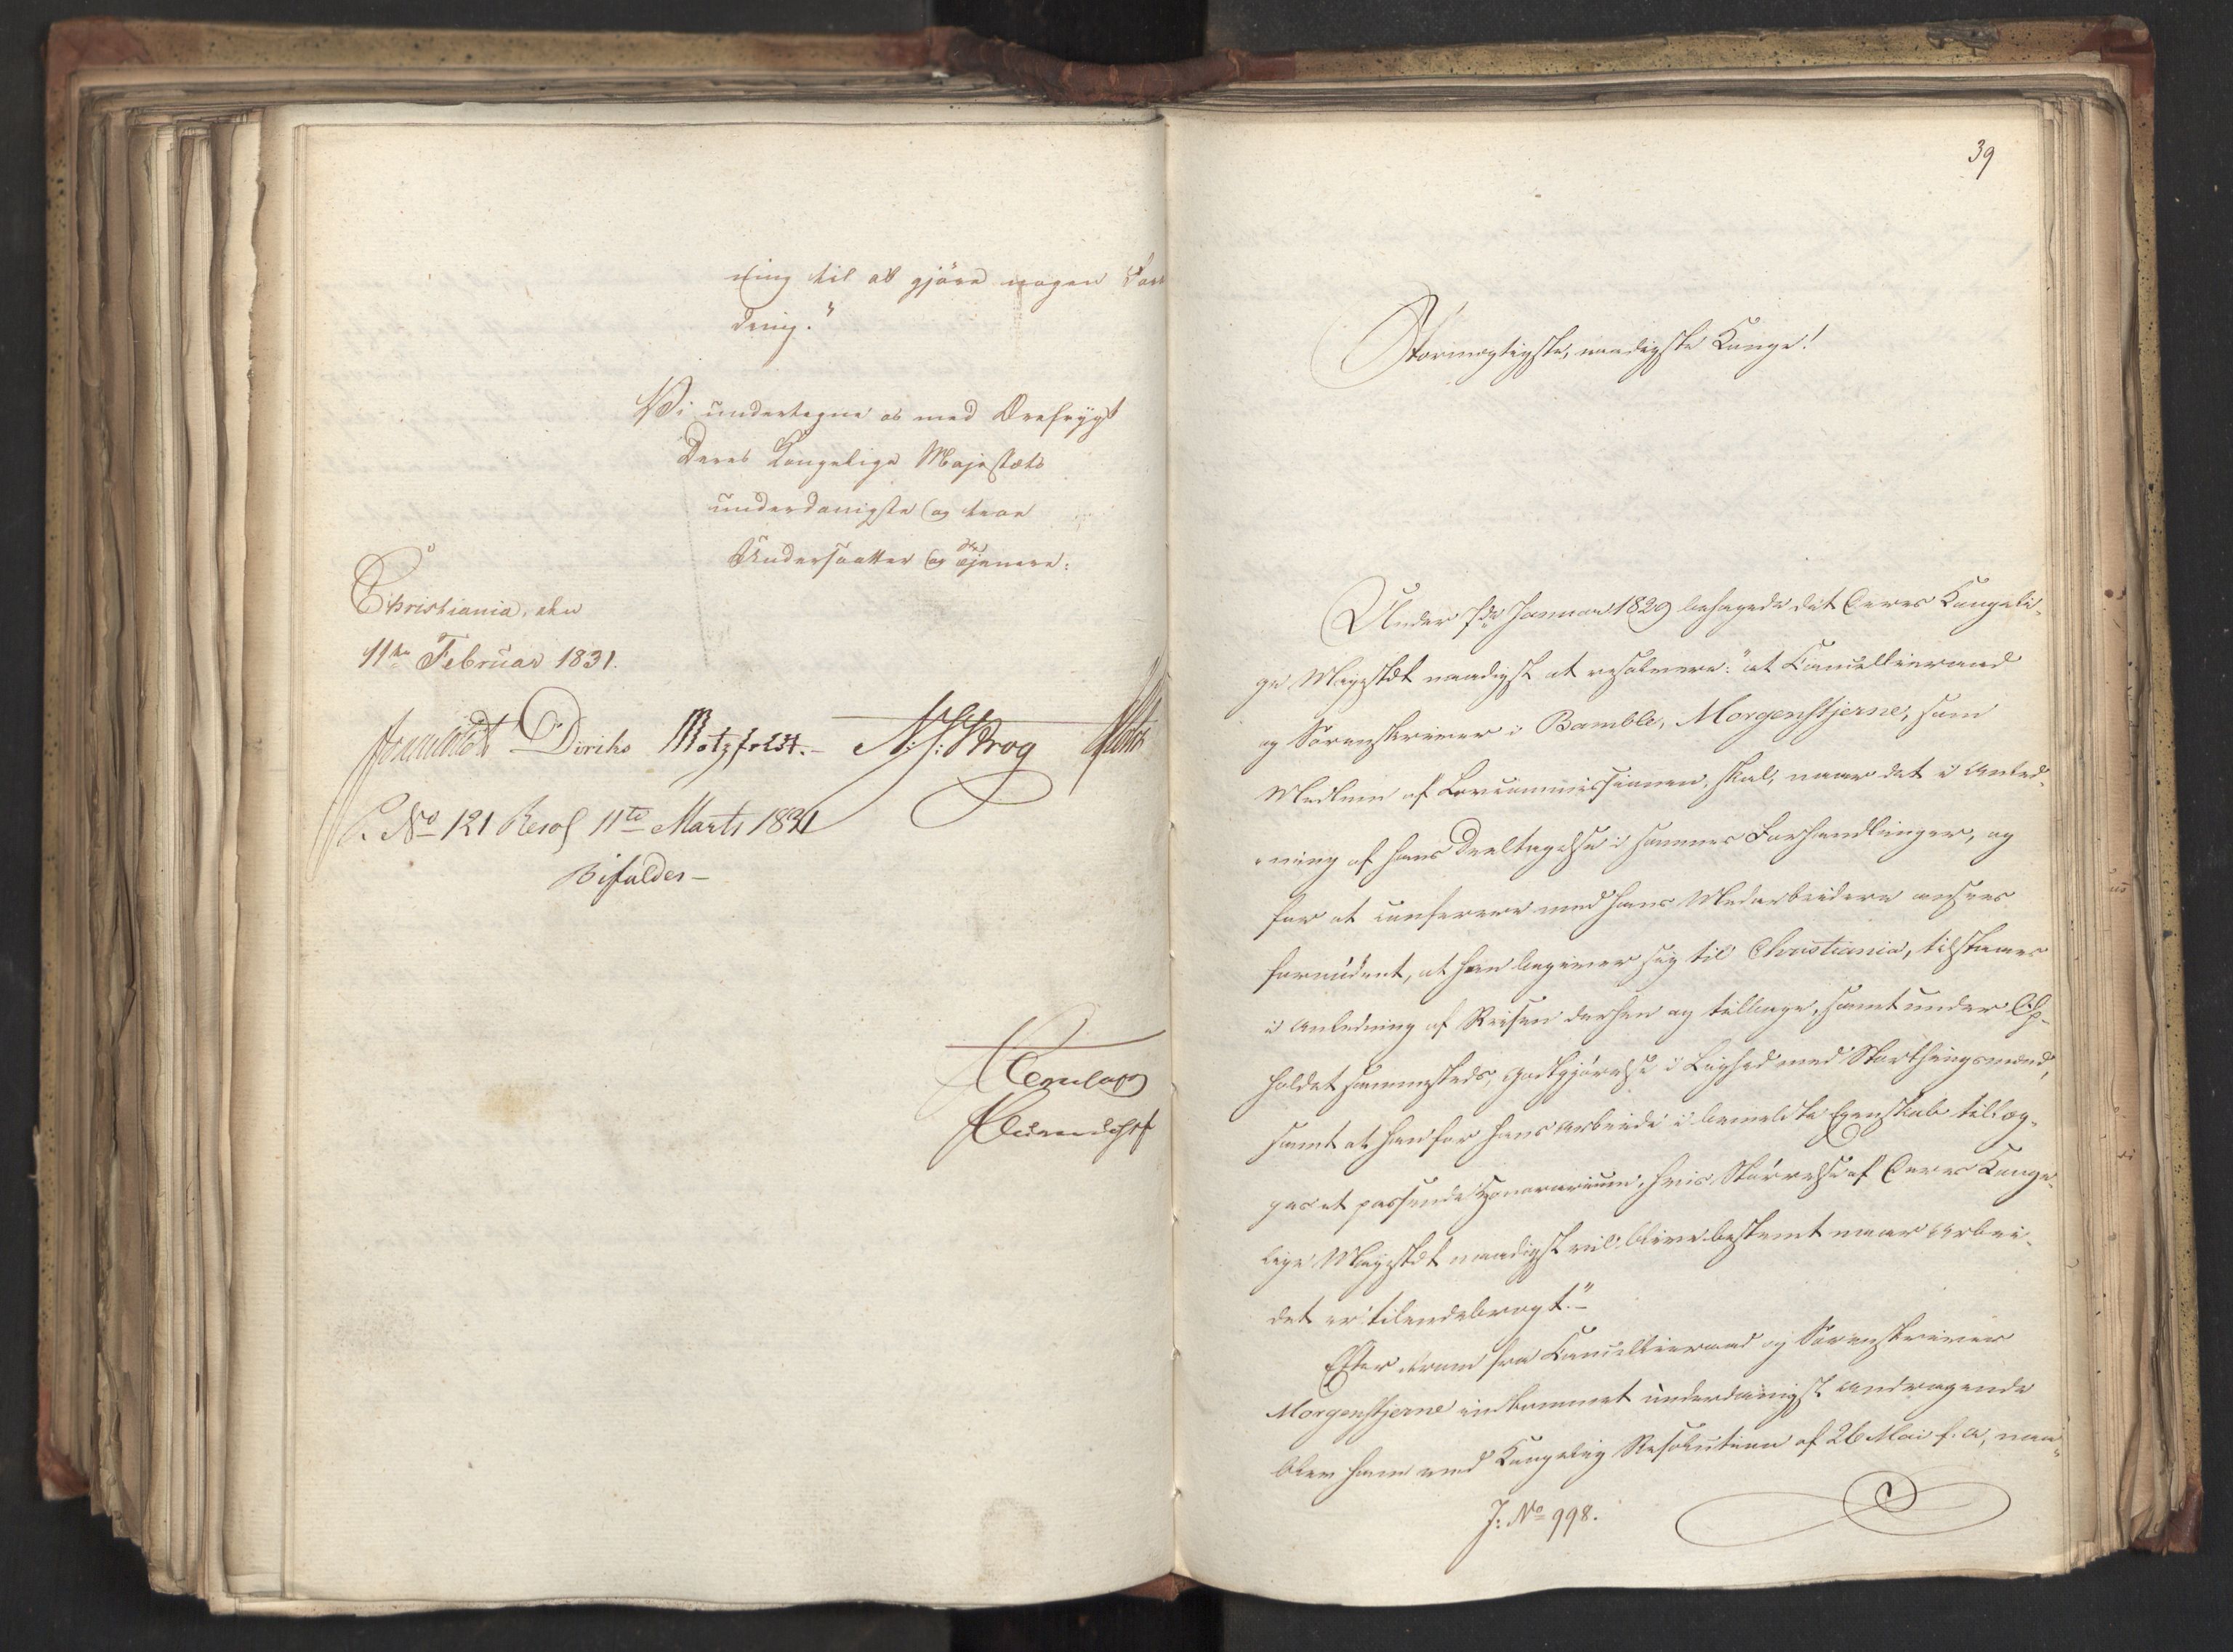 ning til at gjöre nogen
dring."
Vi undertegne os med Ærefrygt
Deres Kongelige Majestæts
underdanigste og troe
Undersaatter og Tjenere:
Christiania, den
11te Februar 1831.
Diriks Motzfeldt. N: J: Krog
P. No 121 Resol 11te Marts 1831
Bifaldes-
39
Stormægtigste, naadigste Konge!
Under 7de Januar 1829 behagede det Deres Kongeli-
ge Majestæt naadigst at resolvere: "at Cancellieraad
og Sorenskriver i Bamble, Morgenstjerne, som
Medlem af Lovcommissionen, skal, naar det i Anled-
ning af hans Deeltagelse i sammes Forhandlinger, og
for at conferere med hans Medarbeidere ansees
fornödent, at han begiver sig til Christiania, tilstaaes
i Anledning af Reisen derhen og tilbage, samt under Op-
holdet sammesteds, Godtgjörelse i Lighed med Storthingsmænd,
samt at han for hans Arbeide i bemeldte Egenskab tillæg-
ges et passende Honorarium, hvis Störrelse af Deres Konge-
lige Majestæt naadigst vil blive bestemt naar Arbei-
det er tilendebragt."-
Efter derom fra Cancellieraad og Sorenskriver
Morgenstjerne indkommet underdanigst Andragende
blev ham ved Kongelig Resolution af 26 Mai f. A, naa-
J: No 998.